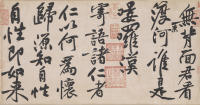 無背面君看
渡河誰是
羅
寄語諸仁者
仁以何為懷
歸源知自性
自性即如来